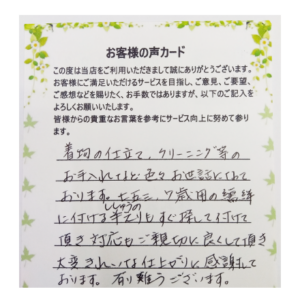 お客様の声カード
この度は当店をご利用いただきまして誠にありがとうございます。
お客様にご満足いただけるサービスを目指し、ご意見、ご要望、
ご感想などを賜りたく、お手数ではありますが、以下のご記入を
よろしくお願いいたします。
皆様からの貴重なお言葉を参考にサービス向上に努めて参り
ます。
着物の仕立て、クリーニング等の
お手入れなど色々お世話になって
おります。七五三、7歳用の襦袢
に付ける半えりもすぐ探して付けて
頂き対応もご親切に良くして頂き
大変きれいな仕上がりに感謝して
おります。有り難うございます。